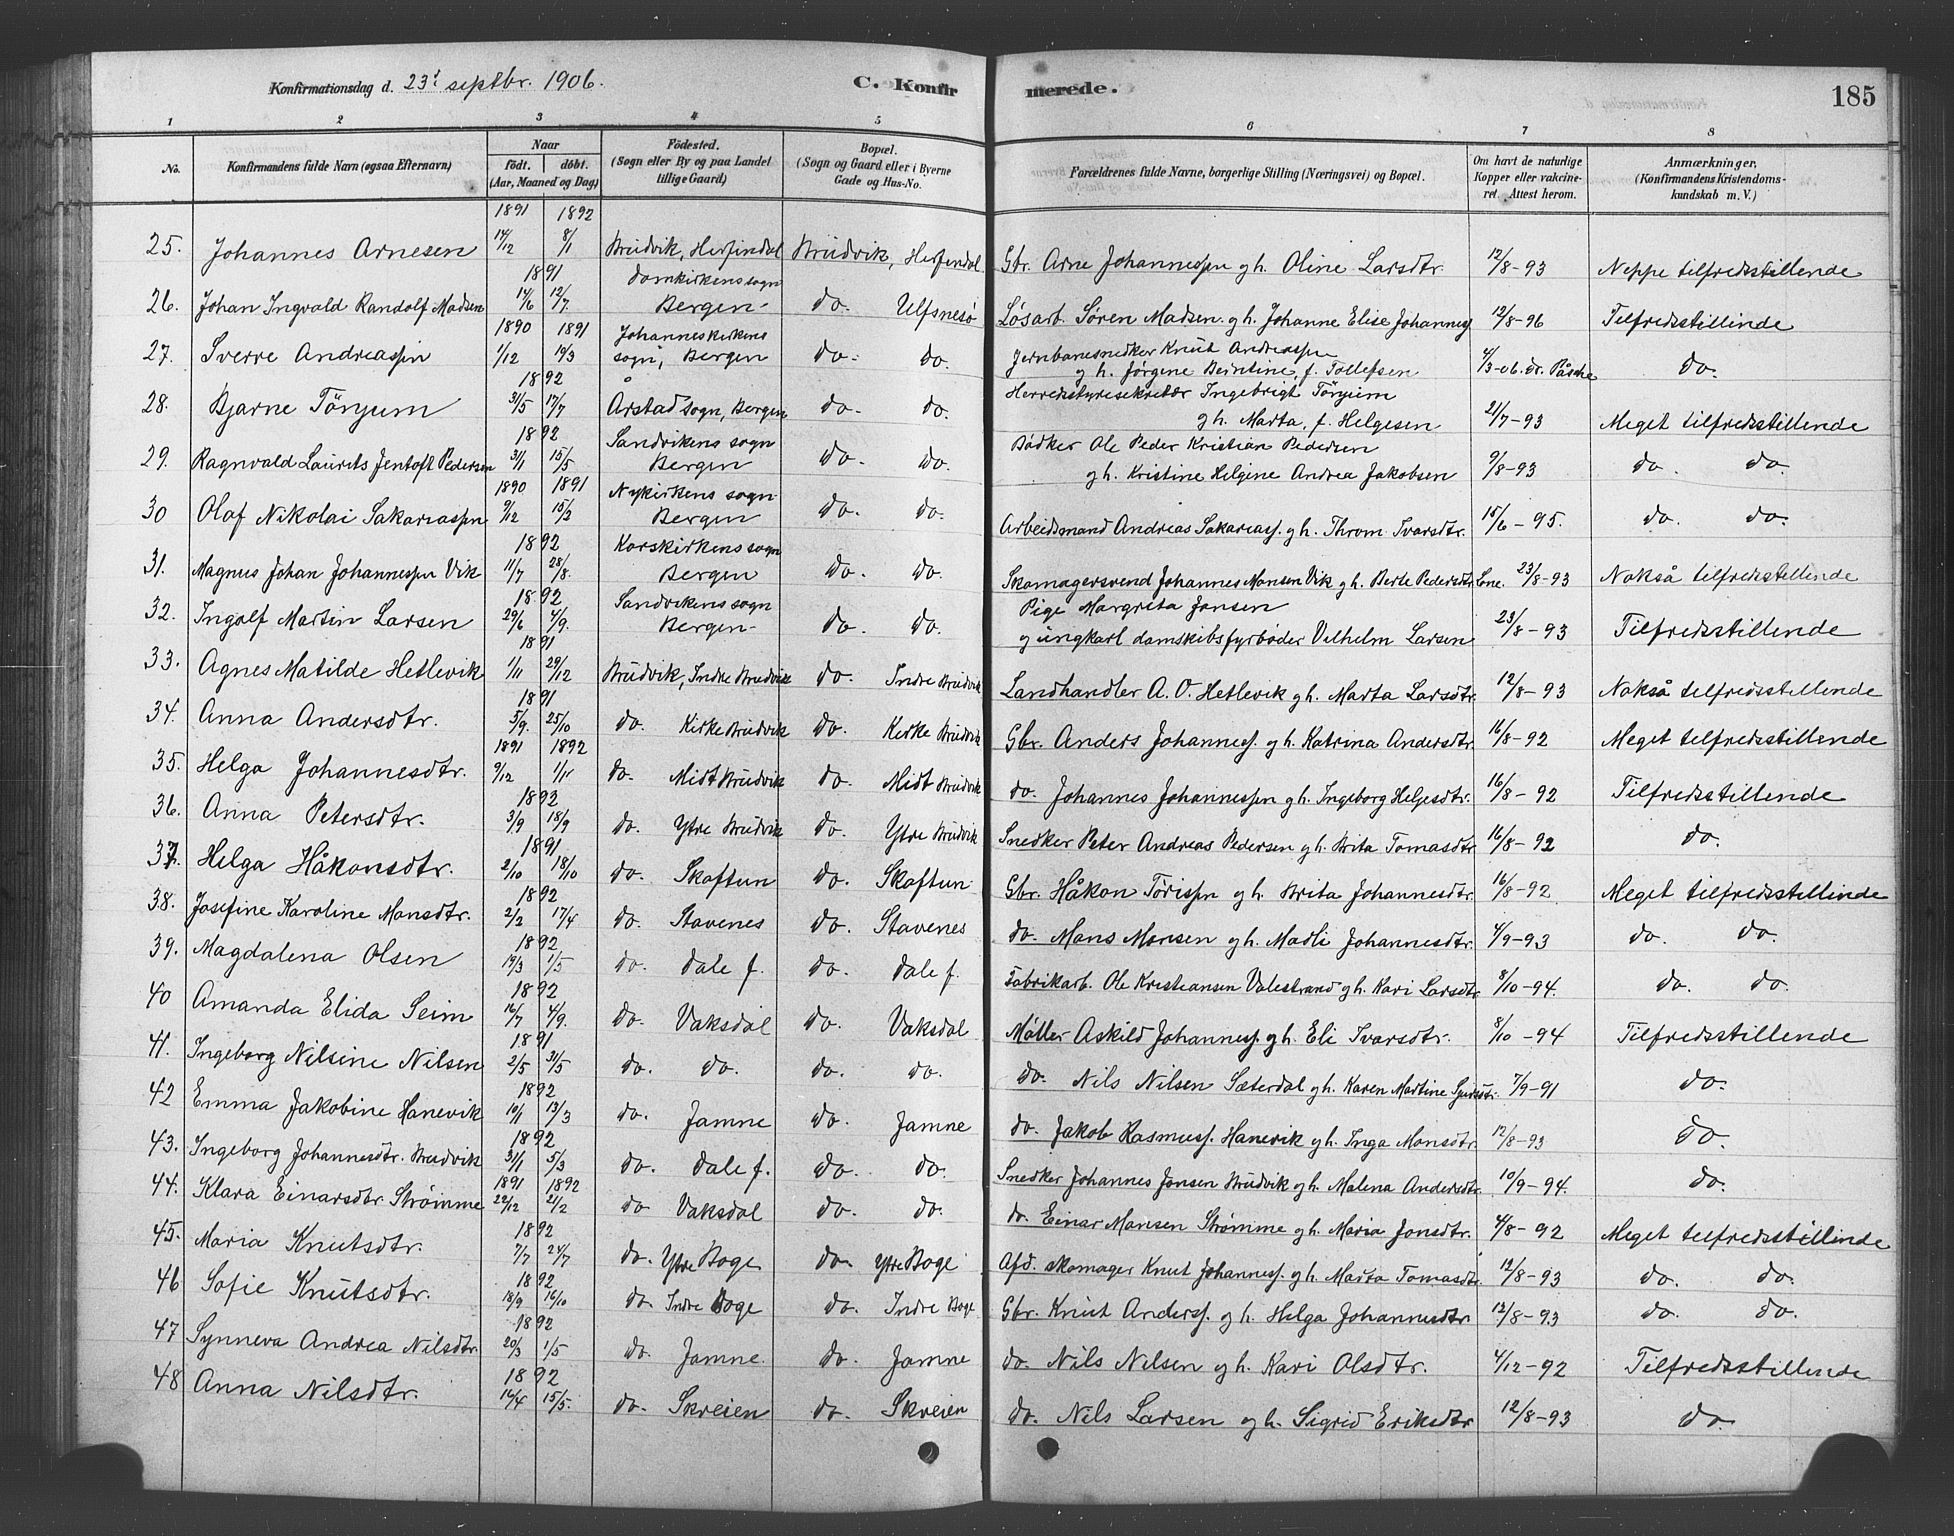 Konfirmationsdag d. 23' septbr. 1906. C. Konfirmerede. 185
1 2 3 4 5 6 7 8
No. Konfirmandens fulde Navn (ogsaa Efternavn) Naar født. døbt. (Aar, Maaned og Dag) Födested. (Sogn eller By og paa Landet tillige Gaard) Bopæl. (Sogn og Gaard eller i Byerne Gade og Hus-No. Forældrenes fulde Navne, borgerlige Stilling (Næringsvei) og Bopæl. Om havt de naturlige Kopper eller vakcineret. Attest herom. Anmærkninger, (Konfirmandens Kristendomskundskab m. V.)
25. Johannes Arnesen 1891 14/12 1892 8/1 Brudvik, Herfindal Brudvik, Herfindal Gbr. Arne Johannessen g h. Oline Larsdtr. 12/8-93 Neppe tilfredsstillende
26. Johan Ingvald Randolf Madsen 1891 14/6 12/7. Domkirkens sogn Bergen- do. Ulfsnesø Løsarb. Søren Madsen g h. Johanne Elise Johannesj 12/8-96 Tilfredsstillinde
27. Sverre Andreassen 1890 1/12 1891 19/3 Johanneskirkens sogn, Bergen do. do. Jernbanesnedker Knut Andreassen g h. Jørgene Berntine, f. Tollefsen 4/3-06. dr. Påsche do.
28. Bjarne Tönjum 1892 31/5 17/7 Årstad sogn, Bergen do. do. Herredsstyresekretær Ingebrigt Tönjum g h. Marta, f. Helgesen 21/7-93 Meget tilfredsstillende
29. Ragnvald Laurits Jentoft Pedersen 1892 31/1 15/5 Sandvikens sogn Bergen do. do. Bödker Ole Peder Kristian Pedersen g h. Kristine Helgine Andrea Jakobsen 9/8-93 do. do.
30 Olaf Nikolai Sakariassen 1890 9/12 1891 15/3 Nykirkens sogn Bergen do. do. Arbeidsmand Andreas Sakariasj. g h. Throm Ivarsdtr. 15/6-95. do. do.
31. Magnus Johan Johannessen Vik 1892 11/7 28/8. Korskirkens sogn Bergen do. do. Skomagersvend Johannes Monsen Vik g h. Berte Pedersdtr. Lone. 23/8-93 Nokså tilfredsstillende
32. Ingolf Martin Larsen 1892 29/6 4/9. Sandvikens sogn Bergen- do. do. Pige Margrita Jansen g ungkarl damskibsfyrbøder Vilhelm Larsen 23/8-93 Tilfredsstillende
33. Agnes Matilde Hetlevik 1891 1/11 29/12 Brudvik, Indre Brudvik do. Indre Brudvik Landhandler A. O. Hetlevik g h. Marta Larsdtr. 12/8-93 Nokså tilfredsstillende
34. Anna Andersdtr. 1891 5/9. 25/10 do. Kirke Brudvik do. Kirke Brudvik Gbr. Anders Johannesj. g h. Katrina Andersdtr. 16/8-92 Meget tilfredsstillende
35. Helga Johannesdtr. 1891 9/12 1892 1/11 do. Midt Brudvik do. Midt Brudvik do. Johannes Johannessen g h. Ingeborg Helgesdtr. 16/8-92 Tilfredsstillende
36. Anna Petersdtr. 1892 3/9 18/9 do. Ytre Brudvik do. Ytre Brudvik Snedker Peter Andreas Pedersen g h. Brita Tomasdtr 16/8-92 do.
37. Helga Håkonsdtr. 1891 2/10 18/10 do. Skoftun do. Skoftun Gbr. Håkon Torissen g h. Brita Johannesdtr. 16/8-92 Meget tilfredsstillinde
38. Josefine Karoline Monsdtr. 1892 2/2 17/4 do. Stavenes do. Stavenes do. Mons Monsen g h. Madli Johannesdtr. 4/9-93 do. do.
39. Magdalena Olsen 1892 19/3 1/5 do. Dale f. do. Dale f. Fabrikarb. Ole Kristiansen Valestrand g h. Kari Larsdtr. 8/10-94. do. do.
40 Amanda Elida Seim 1892 16/7 4/9. do. Vaksdal do. Vaksdal Møller Askild Johannesj. g h. Eli Ivarsdtr. 8/10-94 Tilfredsstillende
41. Ingeborg Nilsine Nilsen 1891 2/5 31/5 do. do. do. do. do. Nils Nilsen Sæterdal g h. Karen Martine Sjursdtr. 7/9-91 do.
42 Emma Jakobine Hanevik 1892 10/1 13/3 do. Jamne do. Jamne do. Jakob Rasmusj. Hanevik g h. Inga Monsdtr. 12/8-93 do.
43. Ingeborg Johannesdtr. Brudvik 1892 31/1 5/3 do. Dale f. do. do. Snedker Johannes Jonsen Brudvik g h. Malena Andersdtr. 10/9-94. do.
44. Klara Einarsdtr Strømme 1891 22/12 1892 21/2 do Vaksdal do. do. do. Einar Monsen Strømme g h. Maria Jonsdtr. 4/8-92 Meget tilfredsstillinde
45. Maria Knutsdtr. 1892 7/7 24/7 do. Ytre Boge do. Ytre Boge Afd. skomager Knut Johannesj. g h. Marta Tomasdtr. 12/8-93 do. do.
46 Sofie Knutsdtr. 1892 18/9 16/10 do. Indre Boge do. Indre Boge Gbr. Knut Andersj. g h. Helga Johannesdtr. 12/8-93 do. do.
47 Synneva Andrea Nilsdtr. 1892 20/3 1/5 do. Jamne. do. Jamne do. Nils Nilsen g h. Kari Olsdtr. 4/12-92 Tilfredsstillende
48 Anna Nilsdtr. 1892 16/4 15/5. do. Skreien do. Skreien do. Nils Larsen g h. Sigrid Eriksdtr 12/8-93 do.